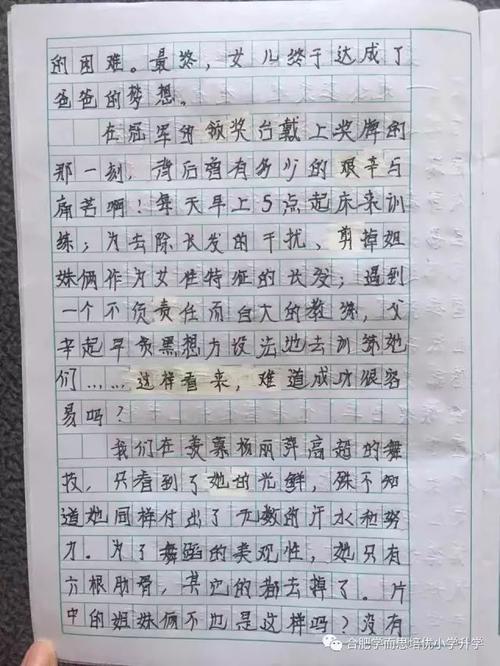 的困难。最终，女儿终于达成了
爸爸的梦想。
在冠军的领奖台戴上奖牌的
那一刻，背后有多少的艰辛与
痛苦啊！每天早上5点起床来训
练；为去除长发的干扰、剪掉姐
妹俩作为女性特征的长发；遇到
一个不负责任而自大的教练，父
亲起早贪黑想方设法地去训练她
们……这样看来，难道成功很容
易吗？
我们在羡慕杨丽萍高超的舞
技，只看到了她的光鲜，殊不知
道她同样付出了无数的汗水和努
力。为了舞蹈的美观性，她只有
六根肋骨，其它的都去掉了。片
中的姐妹俩不也是这样吗？没有
合肥学而思培优小学升学